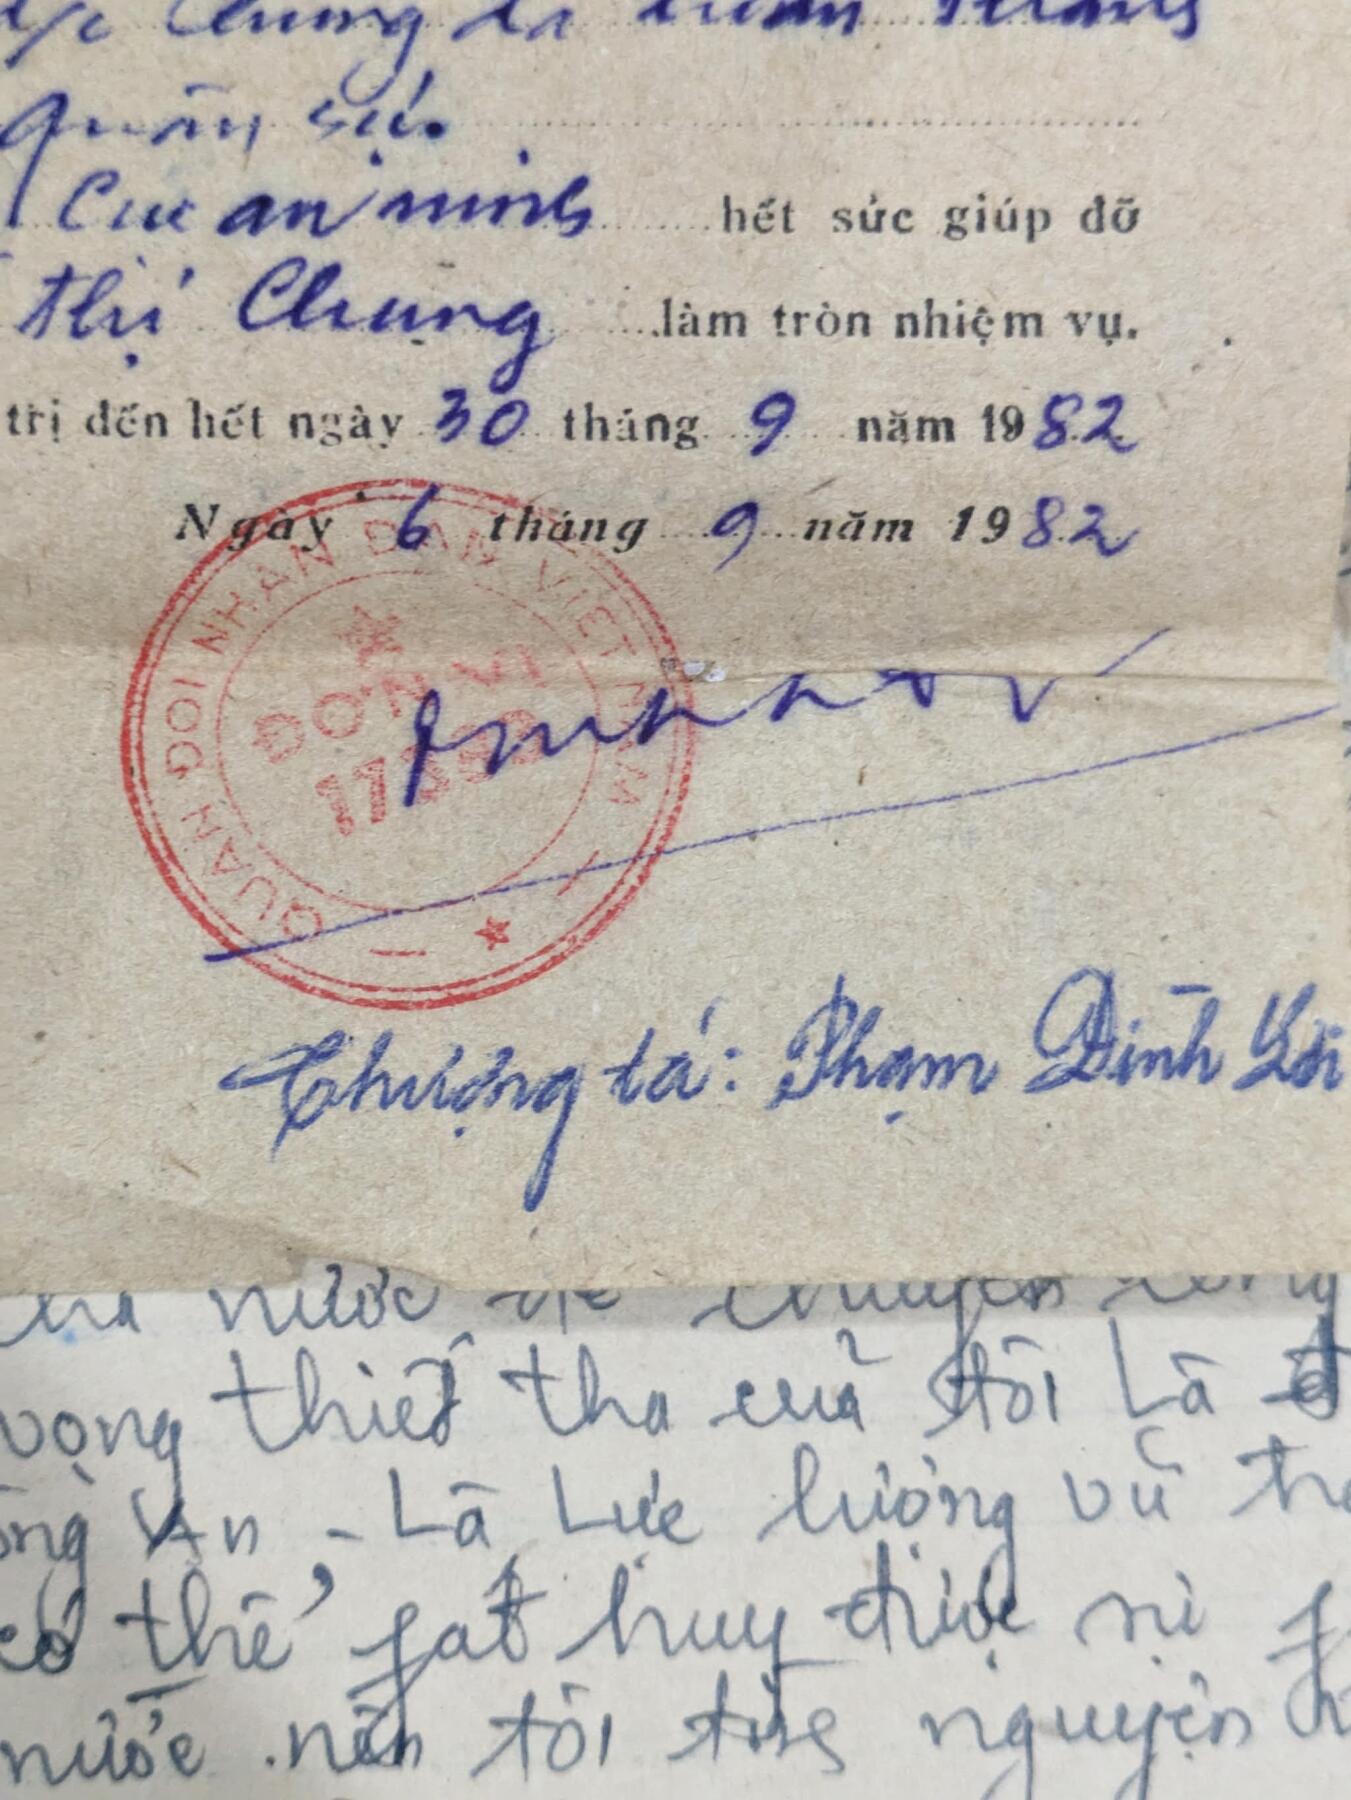 Chung đã
quân sự.
Cục an ninh hết sức giúp đỡ
thị Chung làm tròn nhiệm vụ.
trị đến hết ngày 30 tháng 9 năm 1982
Ngày 6 tháng 9 năm 1982
QUÂN ĐỘI NHÂN DÂN VIỆT NAM
ĐƠN VỊ
Thượng tá: Phạm Đình
nước để chuyển
vọng thiết tha của tôi Là
An - Là Lực lượng vũ
có thể fát huy được sự
nước nên tôi tình nguyện